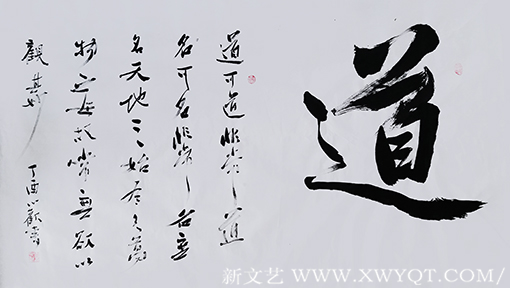 道
道可道非常之道
名可名非常之名無
名天地之始有名萬
物之母故常無欲以
觀其妙
丁酉
新文艺 WWW.XWYQT.COM/